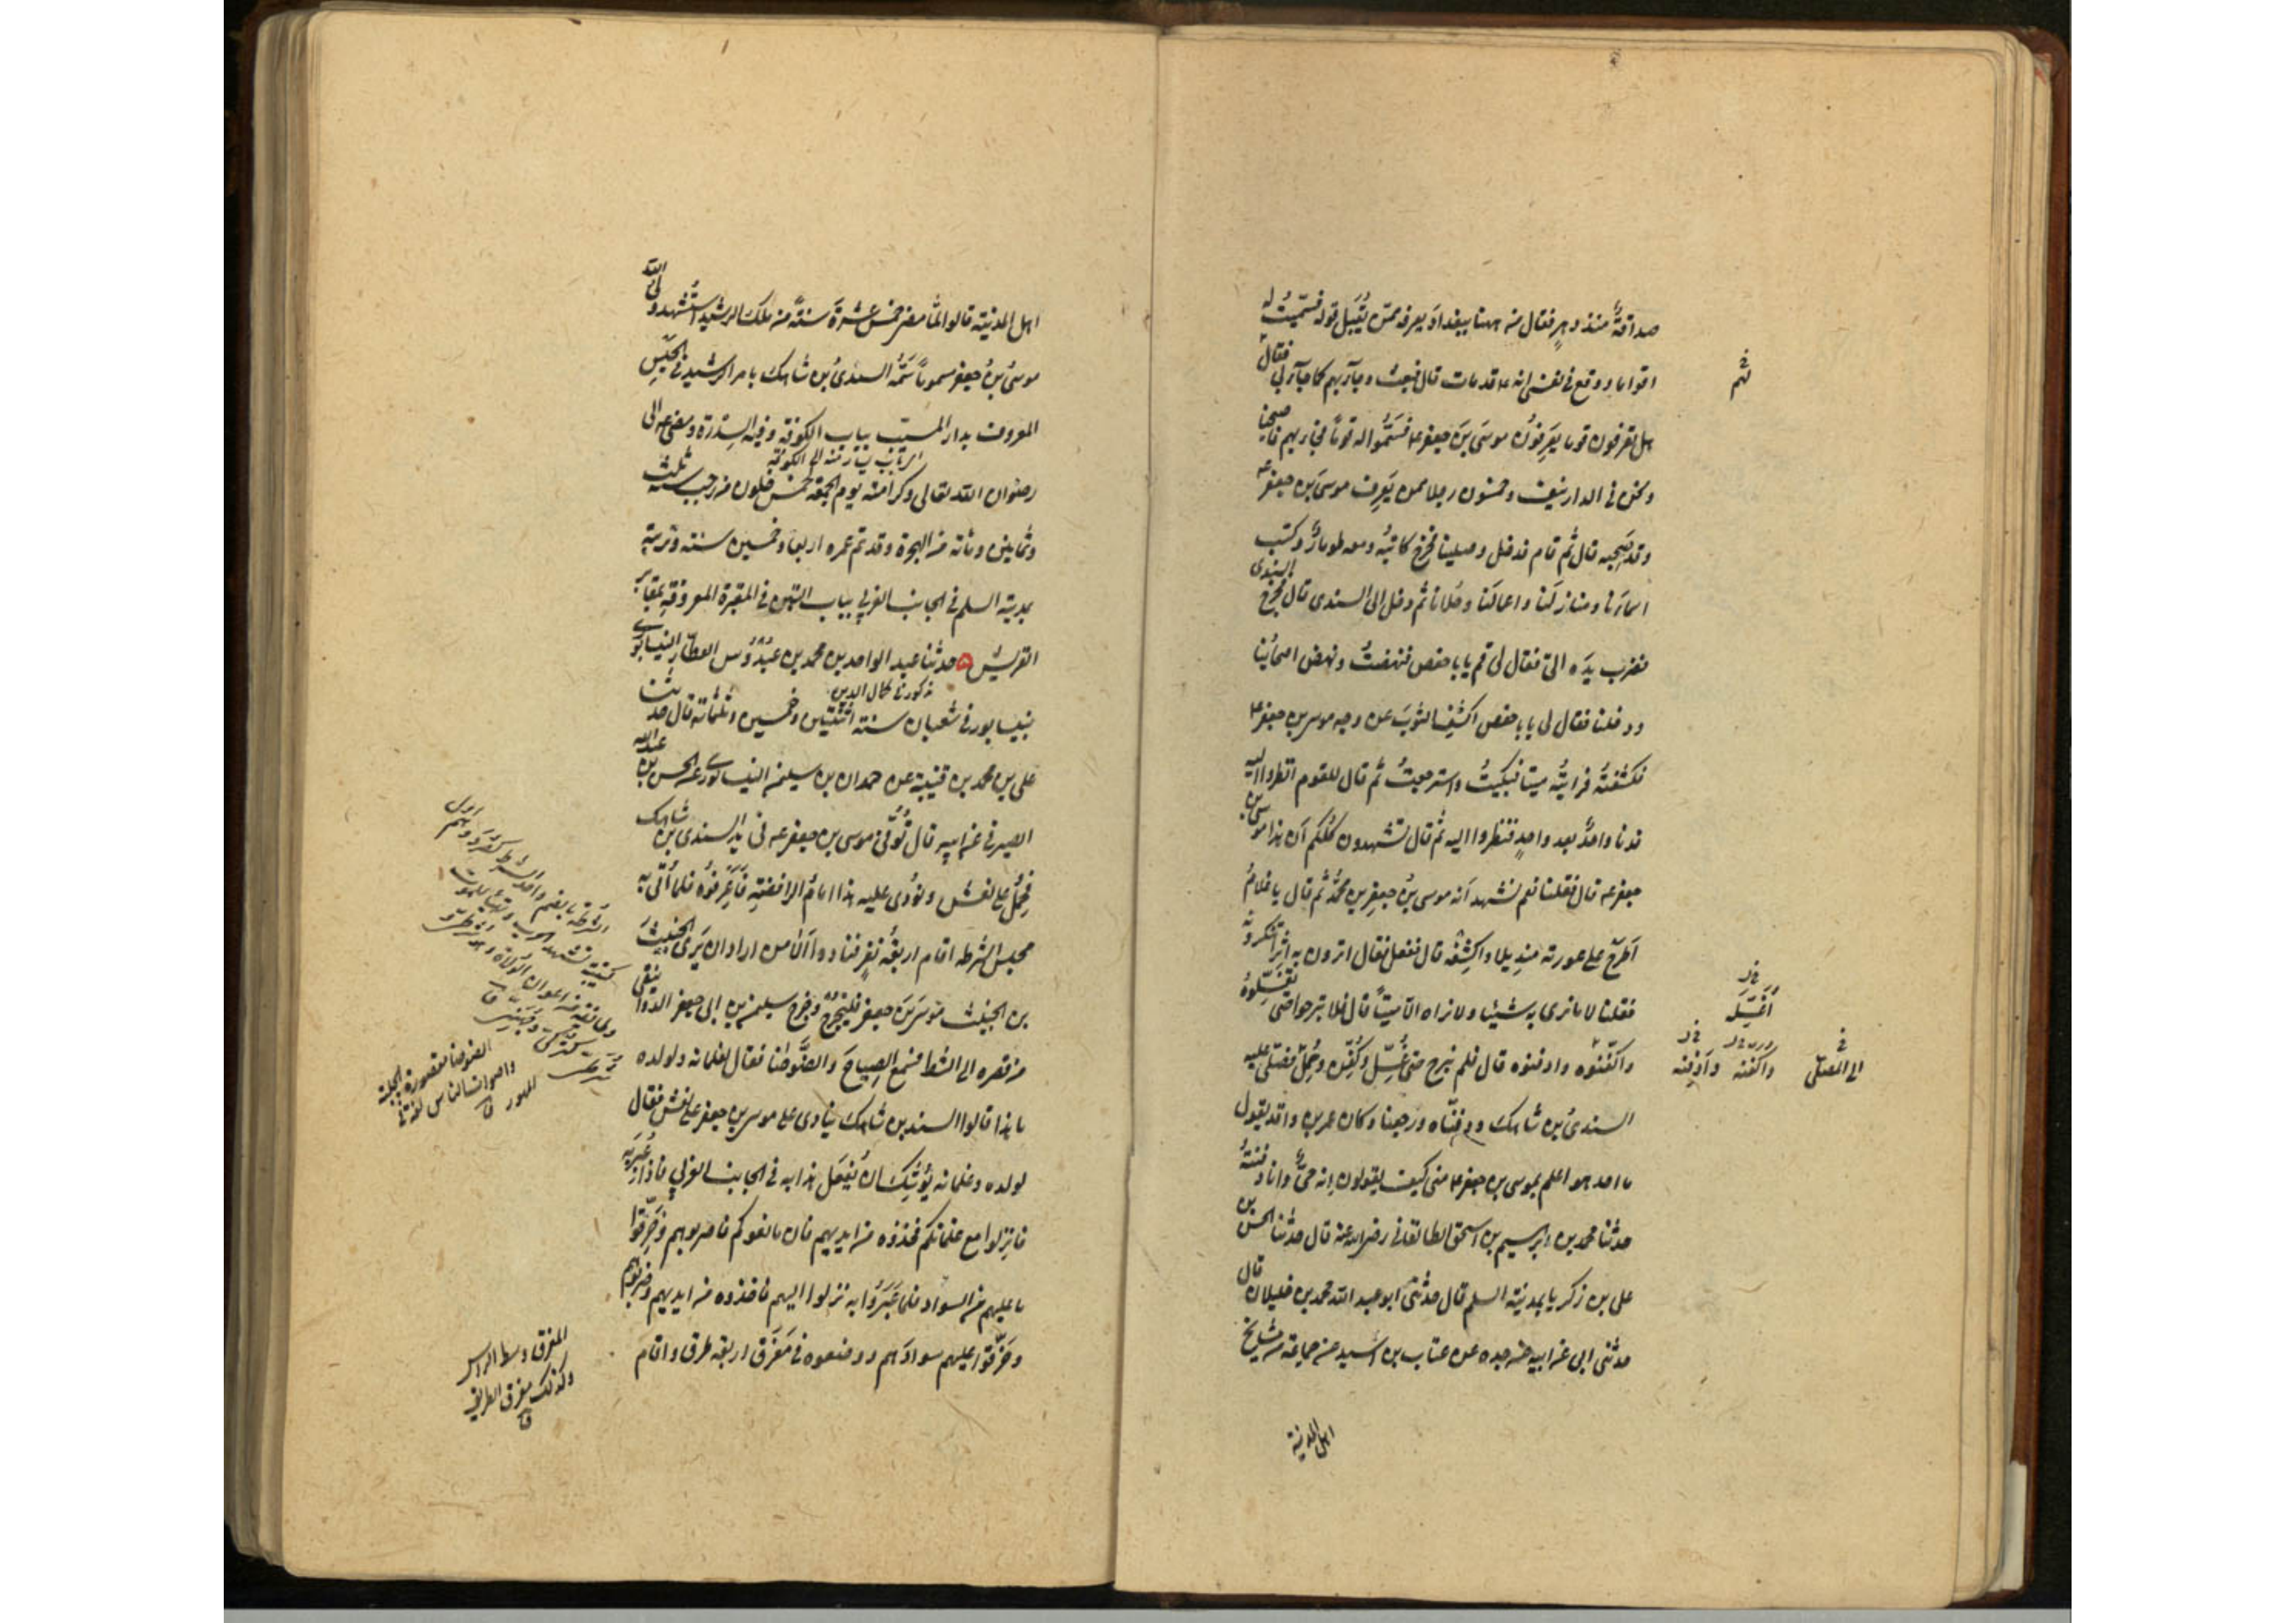 صداقةٌ منذ دهرٍ فقال من ههنا ببغداد يعرفه ممن يُقبَل قوله فسمّيتُ له
اقواما ووقع في نفسي انه ع قد مات قال فبعث وجآء بهم كما جآء بي فقال
هل تعرفون قوما يَعرِفونَ موسَى بنَ جعفر ع فسَمَّوا له قوماً فجآء بهم فاصبحنا
ونحن في الدار نيف وخمسون رجلا ممن يَعرِف موسى بن جعفر ع
وقد صَحِبه قال ثم قام فدخل وصلينا فخرج كاتبُه ومعه طومارٌ وكتب
اسمآءنا ومنازلنا واعمالنا وحُلانا ثم دخل الى السندى قال فخرج السندى
فضرب يدَه الىّ فقال لى قم يابا حفص فنهضتُ ونهض اصحابُنا
ودخلنا فقال لى يابا حفص اكشفِ الثوبَ عن وجه موسى بن جعفر ع
فكشفتُه فرايتُه ميتا فبكيتُ واسترجعتُ ثم قال للقوم انظروا اليه
فدنا واحدٌ بعد واحدٍ فنظروا اليه ثم قال تشهدون كلّكم أن هذا موسى بن
جعفر ع قال فقلنا نعم نشهد أنه موسى بنُ جعفرِ بنِ محمد ثم قال يا غلامُ
اَطرَح على عورته منديلا واكشِفْه قال ففعل فقال اترون به اثراً تنكرونه
فقلنا لا ما نرى به شيئا ولا نراه الّا ميتاً قال فلا تبرحوا حتى تغسِّلوهُ
واكفّنوه وادفنوه قال فلم نبرح حتى غُسِّل وكُفِّن وحُمِلَ فصلى عليه
السندىُ بن شاهك ودفنّاه ورجعنا وكان عمر بن واقد يقول
ما احد هو اعلم بموسى بن جعفر ع منى كيف يقولون انه حىٌ وانا دفنتُه
حدثنا محمد بن ابرهيم بن اسحق الطالقانى رضى الله عنه قال حدثنا الحسن بن
على بن زكريا بمدينة السلم قال حدثنى ابو عبد الله محمد بن خليلان قال
حدثنى ابى عن ابيه عن جده عن عتاب بن اسيد عن جماعة من مشايخ
اهل المدينة
اغسله
واكفنه وادفنه
الى المصلى
اهل المدينة قالوا لمّا مضى خمس عشرةَ سنةً من ملك الرشيد استُشهد ولى الله
موسىُ بنُ جعفر مسموماً سَمَّه السندىُ بن شاهك بامر الرشيد فى الحبسِ
المعروف بدار المسيب بباب الكوفة وفيه السِدْرَة ومضى ع الى
رضوان الله تعالى وكرامته يوم الجمعة لخمس خلون من رجب سنة ثلث
وثمانين ومائة من الهجرة وقد تم عمره اربعا وخمسين سنة وتربته
بمدينة السلم فى الجانب الغربى بباب التبن فى المقبرة المعروفة بمقابر
القريش حدثنا عبد الواحد بن محمد بن عُبْدُوس العطّار النيسابورى
بنيسابور فى شعبان سنة اثنتين وخمسين وثلثمائة قال حدثنا
على بن محمد بن قتيبة عن حمدان بن سليمن النيسابورى عن الحسن بن عبد الله
الصيرفى عن ابيه قال تُوُفّى موسى بن جعفر ع فى يد السندى بن شاهك
فحُمِل على نعش ونودى عليه هذا امامُ الرافضةِ فاَعرِفوُه فلما أُتى به
مجلسَ الشرطه اقام اربعةَ نفرٍ فنادوا اَلا من اراد ان يَرى الخبيثَ
بن الخبيث موسَى بنَ جعفر فليخرج وخرج سليمن بن ابى جعفر الدوانيقى
من قصره الى الشط فسمع الصِياحَ والضَّوضا فقال لغلمانه ولولده
ما هذا قالوا السندى بن شاهك ينادى على موسى بن جعفر على نعش فقال
لولده وغلمانه يُوشِك ان يُفعَل هذا به فى الجانب الغربى فاذا عُبِرَ به
فانزلوا مع غلمانكم فخذوه من ايديهم فان مانعوكم فاضربوهم وخَرِّقوا
ما عليهم من السواد فلما عَبَروا به نزلوا اليهم فاخذوه من ايديهم وضربوهم
وخَرّقوا عليهم سوادهم ووضعوه فى مَفرق اربعة طرق واقام
الضوضا مقصورة الجلبة
واصوات الناس لغة فى
المهموز ق
المفرق وسط الراس
وكذلك مفرق الطريق
ق